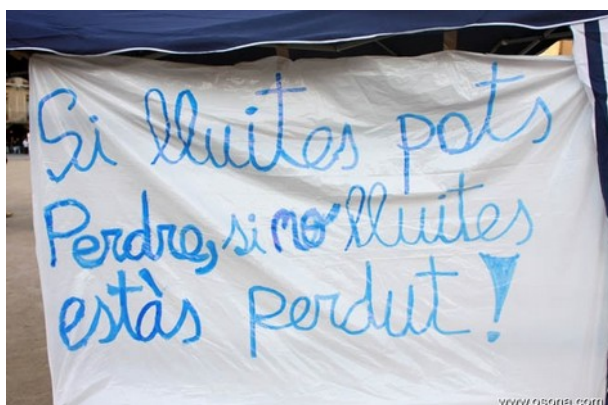 Si lluites pots
Perdre, si no lluites
estàs perdut!
www.osona.com